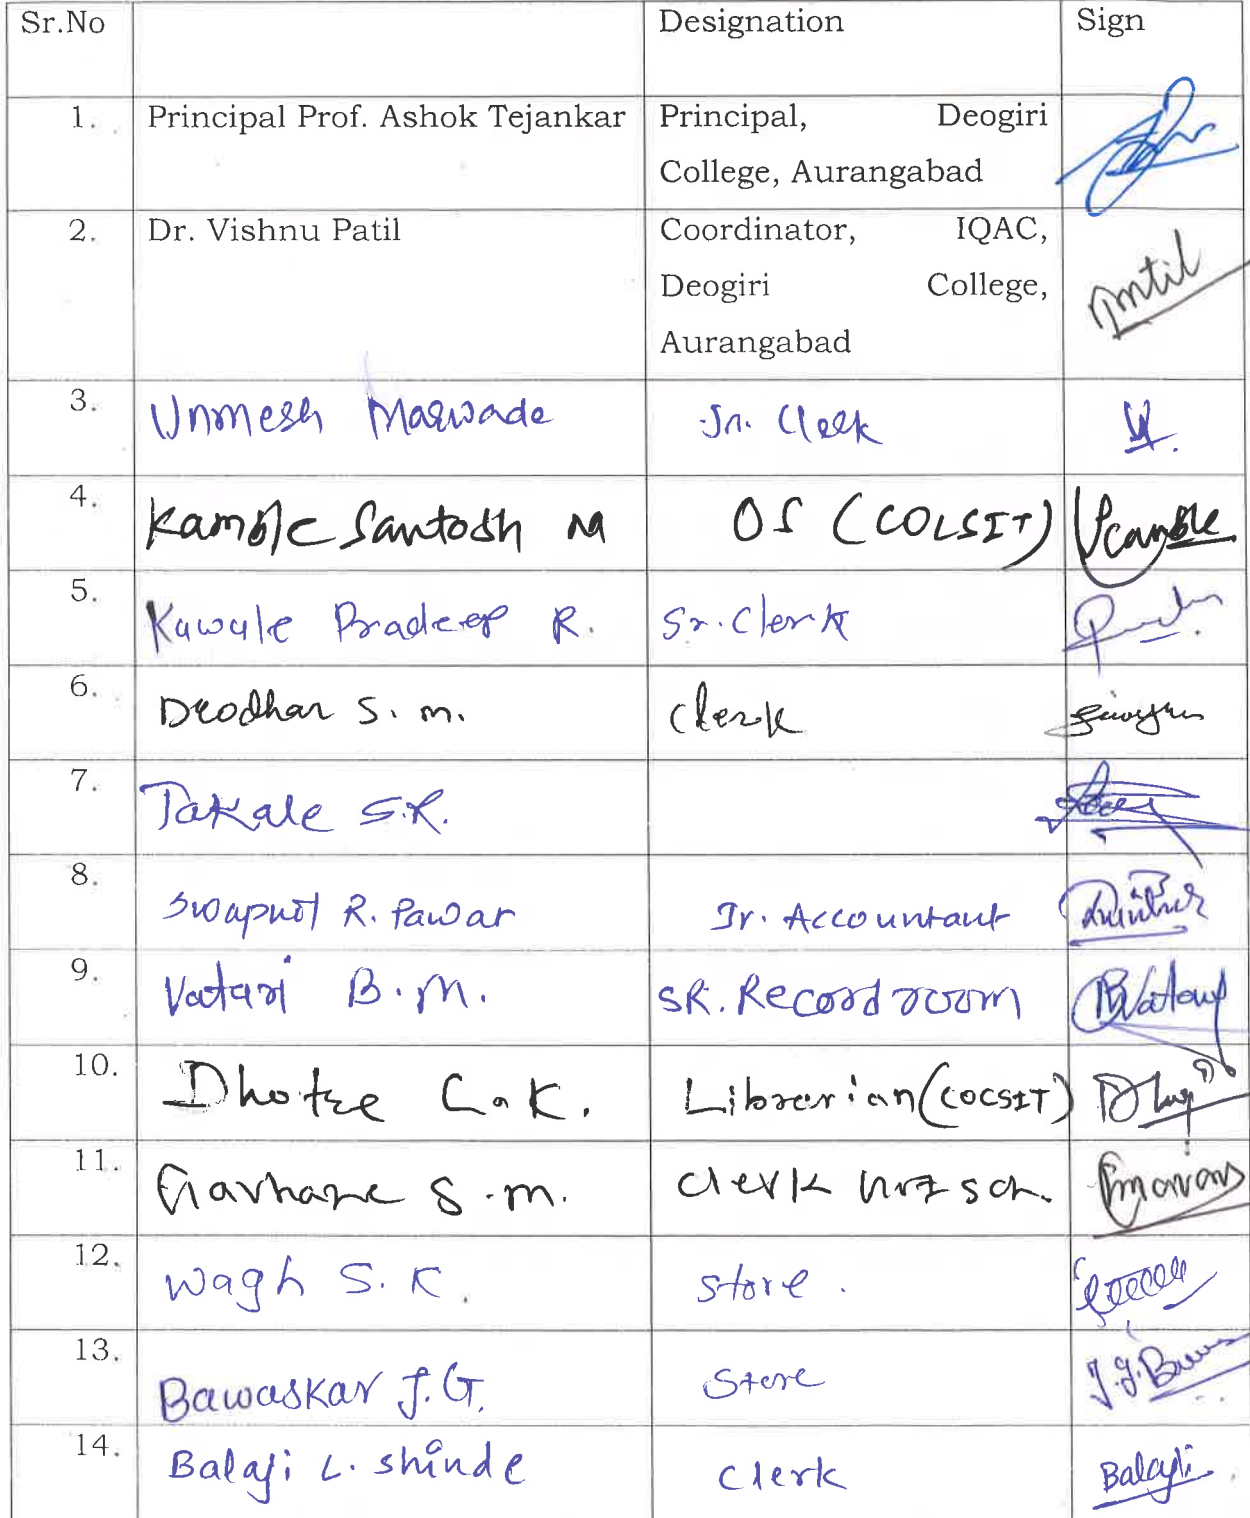 Sr.No Designation Sign
1. Principal Prof. Ashok Tejankar Principal, Deogiri
College, Aurangabad
2. Dr. Vishnu Patil Coordinator, IQAC,
Deogiri College,
Aurangabad
3. Unmesh Jr. Clerk
4. Kamble Santosh M OS (COCSIT) Kamble
5. Kawale Pradeep R. Sr. Clerk
6. Deodhar S. M. Clerk
7. Takale S.R.
8. Swapnil R. Pawar Jr. Accountant
9. Vatari B.M. SR. Record room
10. Dhotre C.K. Librarian (COCSIT)
11. S.M. Clerk
12. Wagh S.K. Store.
13. Bawaskar J.G. Store
14. Balaji L. Shinde Clerk Balaji